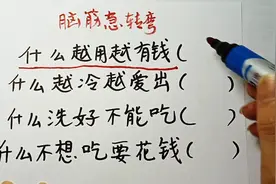 脑筋急转弯
什么越用越有钱( )
什么越冷越爱出( )
什么洗好不能吃( )
什么不想吃要花钱( )